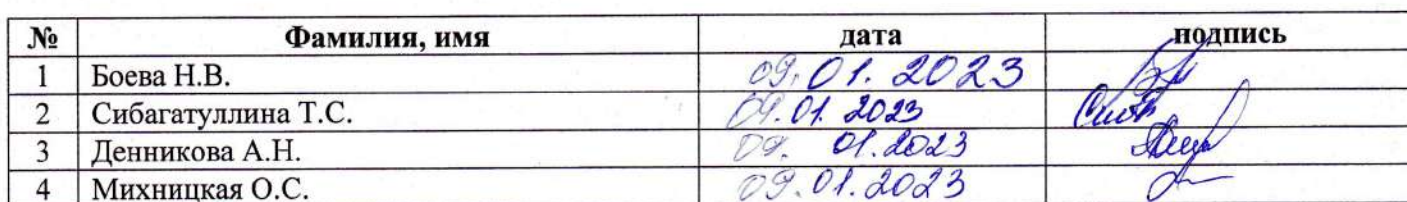 № Фамилия, имя дата подпись
1 Боева Н.В. 09.01.2023
2 Сибагатуллина Т.С. 09.01.2023
3 Денникова А.Н. 09.01.2023
4 Михницкая О.С. 09.01.2023